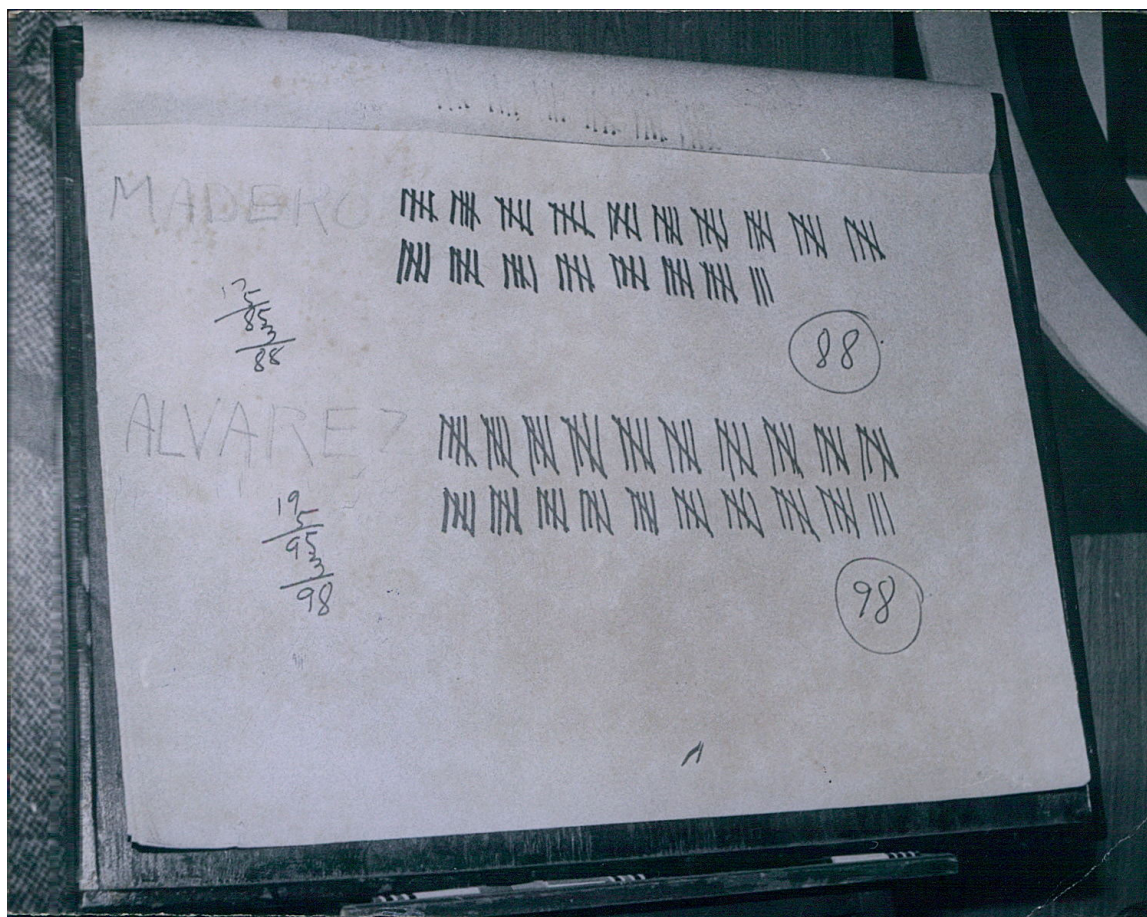 MADERO
17
5
85
3
88
88
ALVAREZ
19
5
95
3
98
98